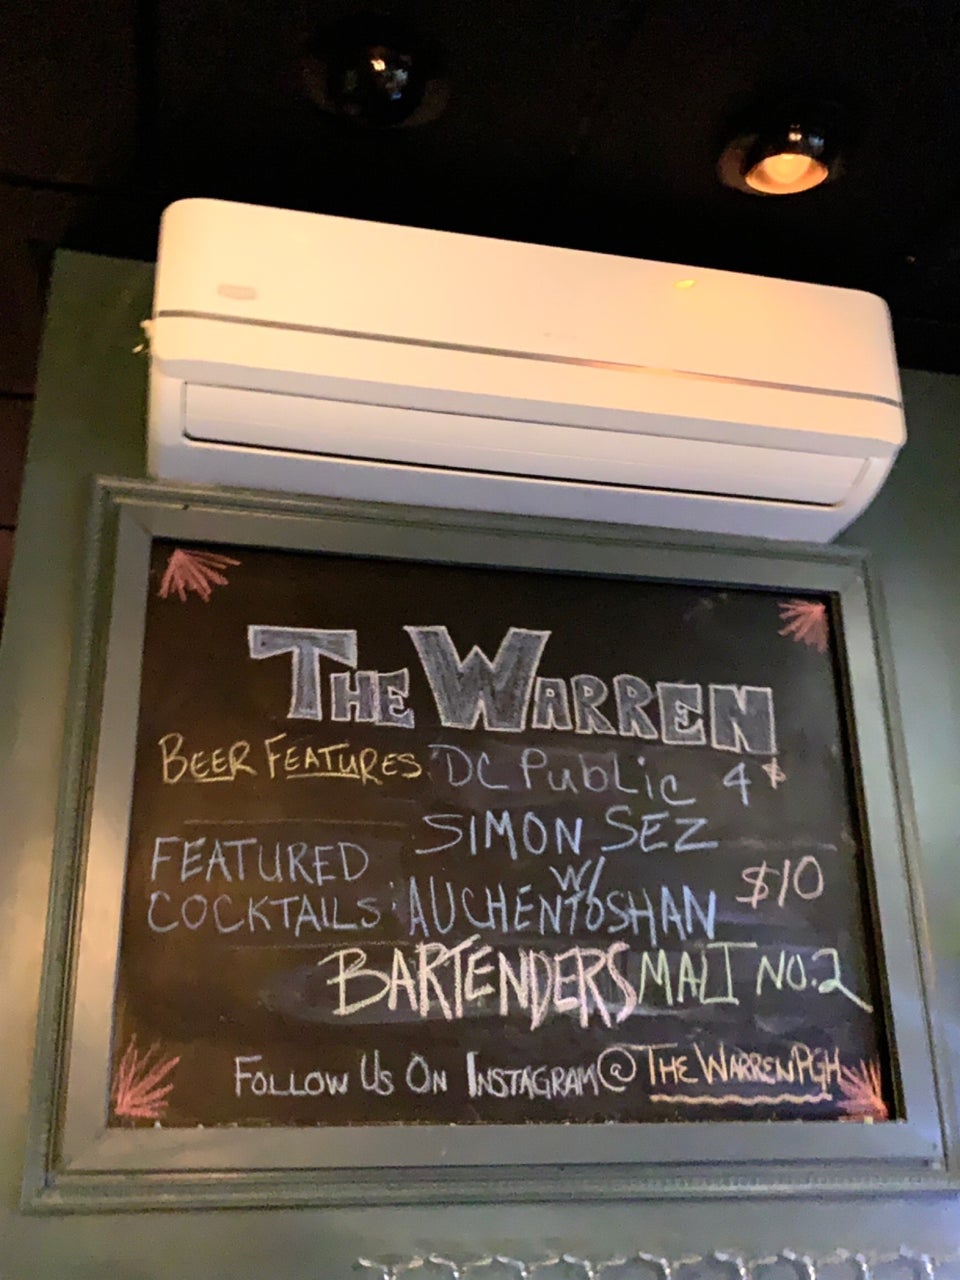 THE WARREN
BEER FEATURES: DC PUBLIC 4$
SIMON SEZ
FEATURED
COCKTAILS: W/ AUCHENTOSHAN $10
BARTENDERS MALT NO.2
FOLLOW US ON INSTAGRAM @THEWARRENPGH